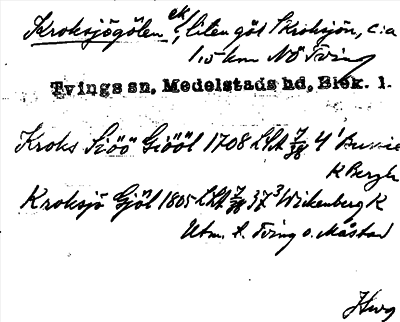 Kroksjögölen ek/, liten göl S Kroksjön, c:a
1,5 km NÖ Tving
Tvings sn, Medelstads hd, Blek. l.
Kroks Siöö Giööl 1708 LSA 7/38 4¹
K Bergh
Kroksjö Gjöl 1805 LSA 7/38 37³ Wickenberg K
Utm. t. Tving o. Måstad